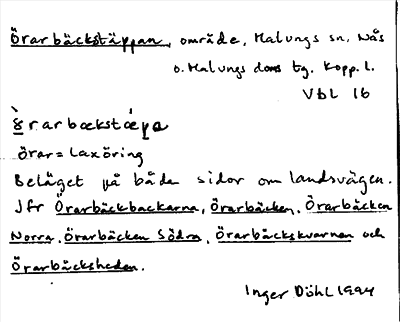 Örarbäckstäppan, område, Malungs sn, Nås
o. Malungs doms tg. Kopp. l.
VbL 16
örarbœkstœ́pa
örar = laxöring
Beläget på båda sidor om landsvägen.
Jfr Örarbäckbackarna, Örarbäcken, Örarbäcken
Norra, Örarbäcken Södra, Örarbäckskvarnen och
Örarbäcksheden.
Inger Döhl 1994